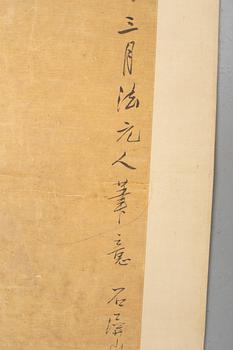 三月法元人筆意 石溪山